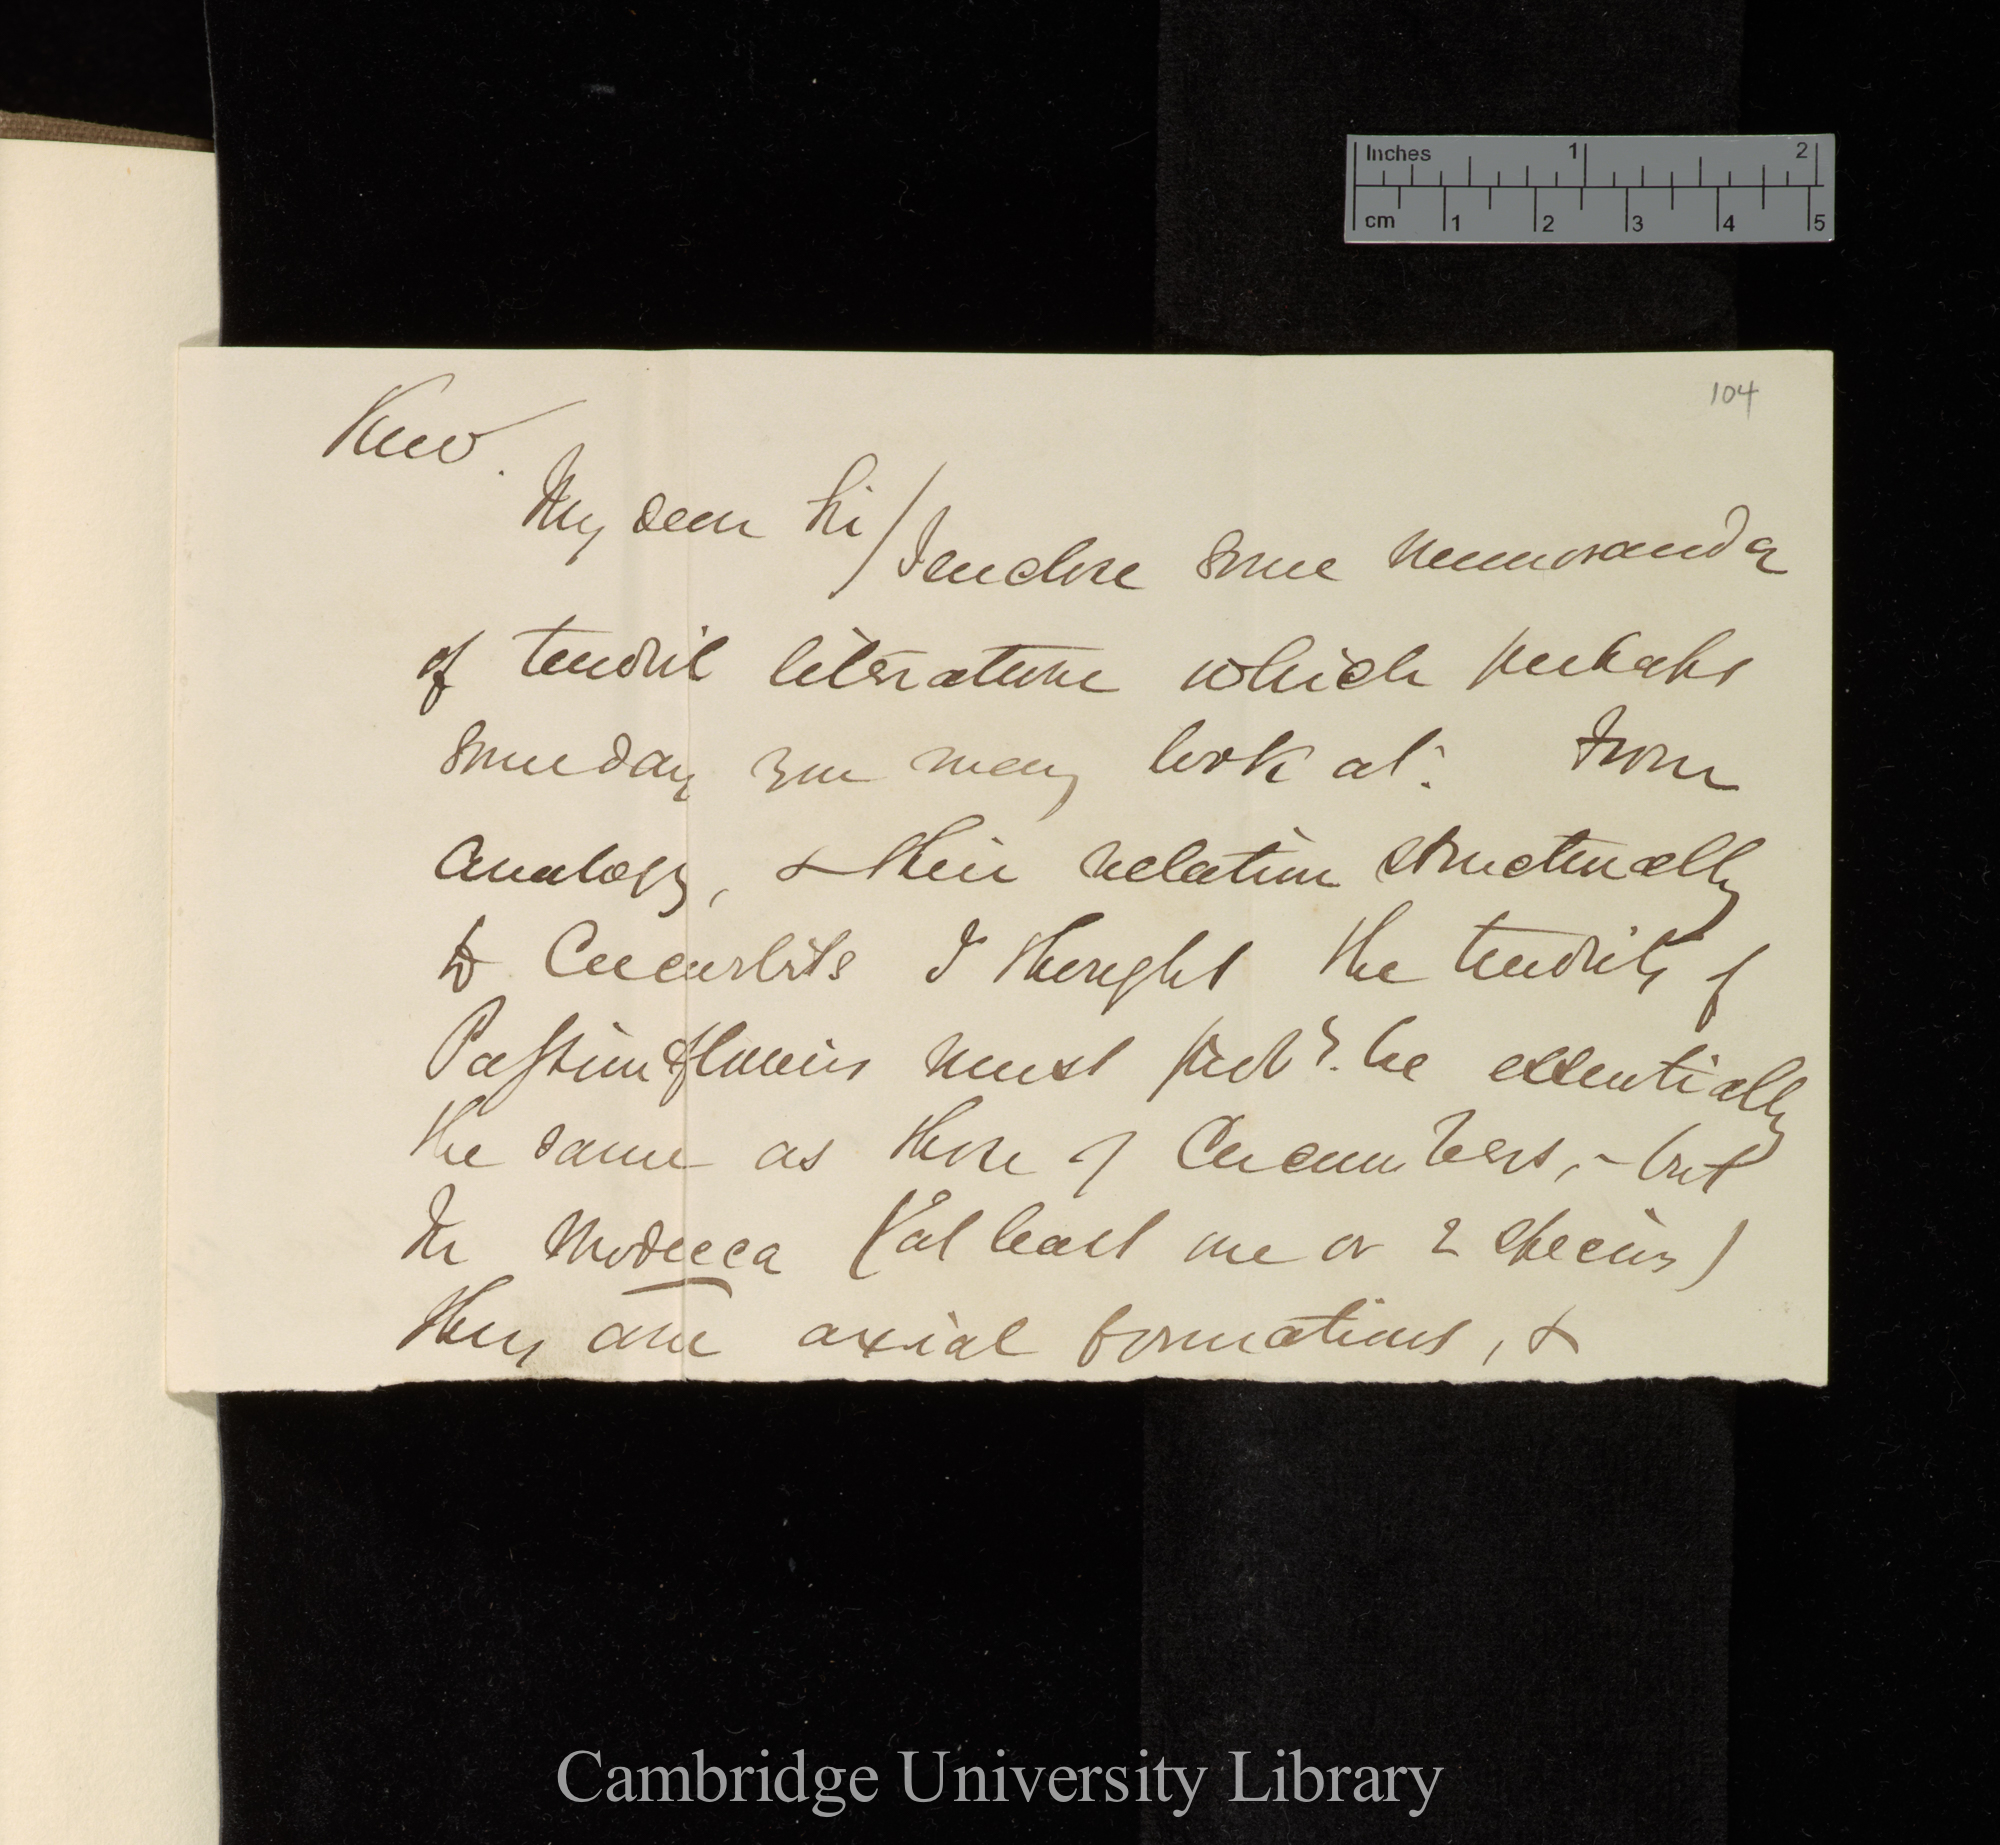 Inches 1 2
cm 1 2 3 4 5
104
Kew.
My dear Sir/ I enclose some memoranda
of tendril literature which perhaps
someday you may look at. From
analogy, & their relation structurally
to Cucurbits I thought the tendrils of
Passionflowers must be essentially
the same as those of Cucumbers, – but
In Modecca (at least one or 2 species)
they are axial formations, &
Cambridge University Library